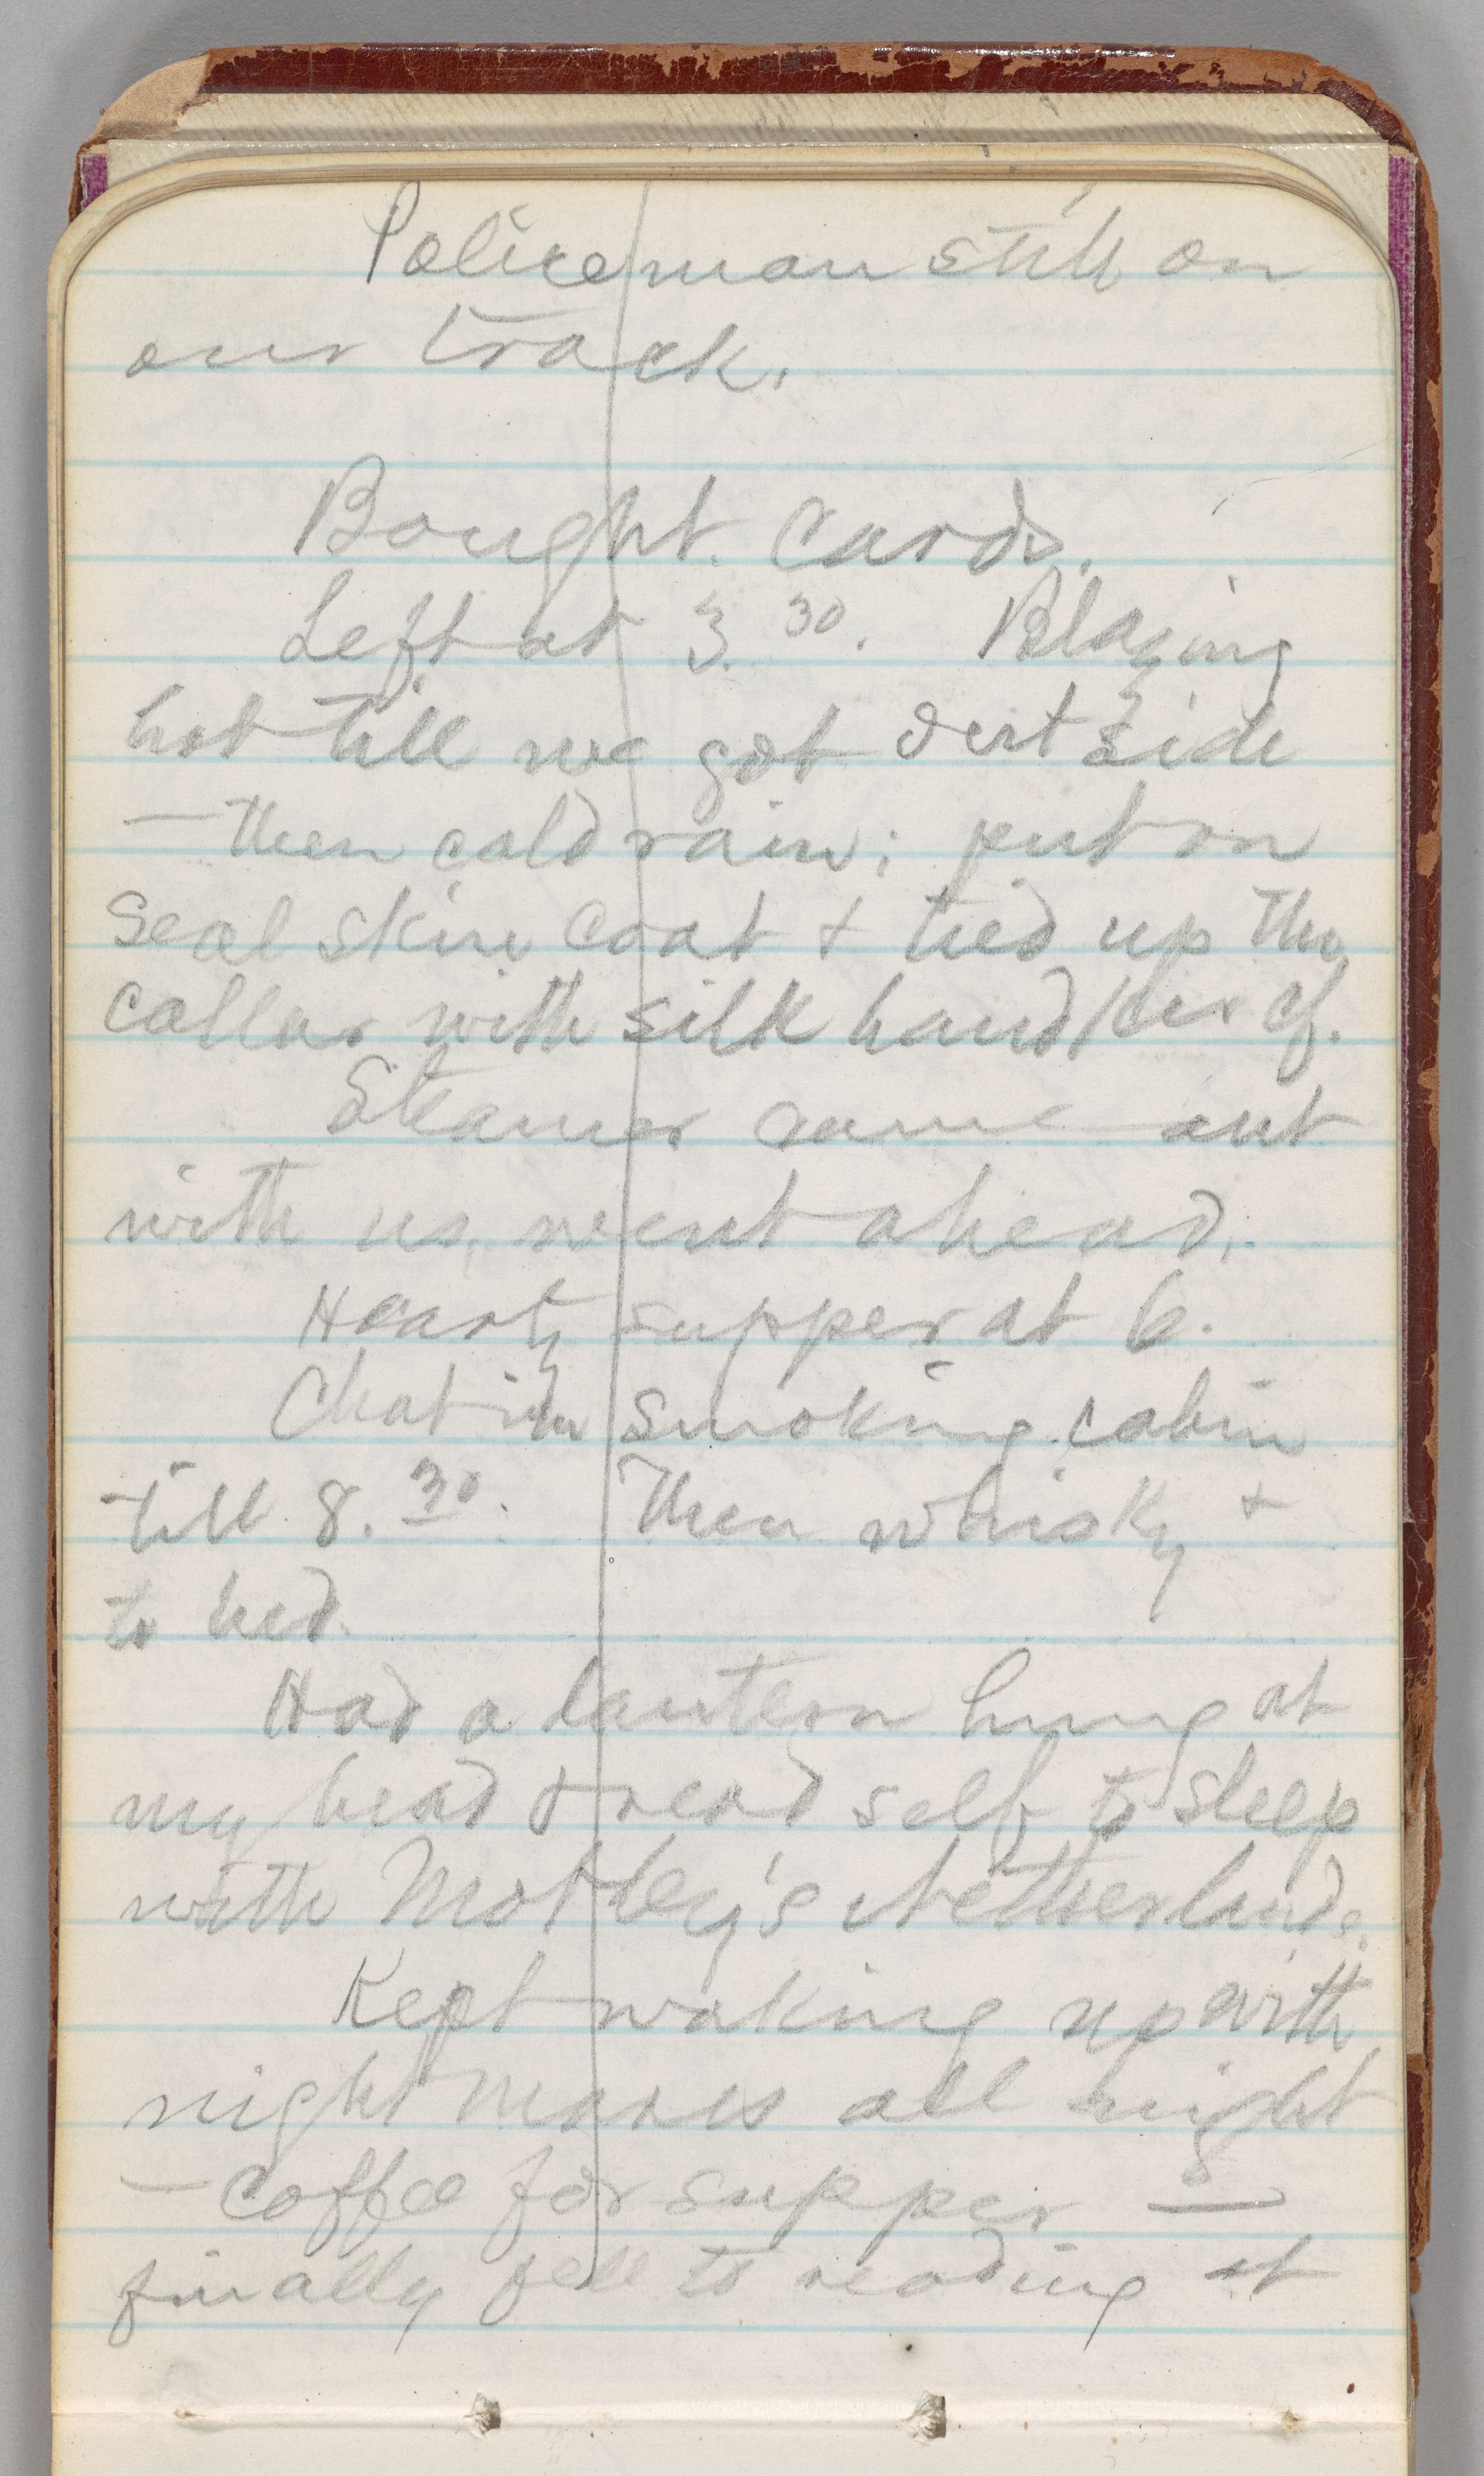 Policeman still on
our track.
Bought cards.
Left at 3.30. Blazing
hot till we got outside
— then cold rain; put on
seal skin coat + tied up the
collar with silk handkerchf.
Steamer came out
with us, went ahead.
Hearty supper at 6.
Chat in smoking cabin
till 8.30. Then whisky +
to bed.
Had a lantern hung at
my head & read self to sleep
with Motley's Netherlands.
Kept waking up with
night mares all night
— coffee for supper —
finally fell to reading at